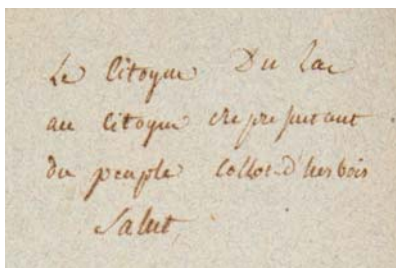 Le Citoyen Du Lac
au Citoyen representant
du peuple Collot-d'herbois
Salut